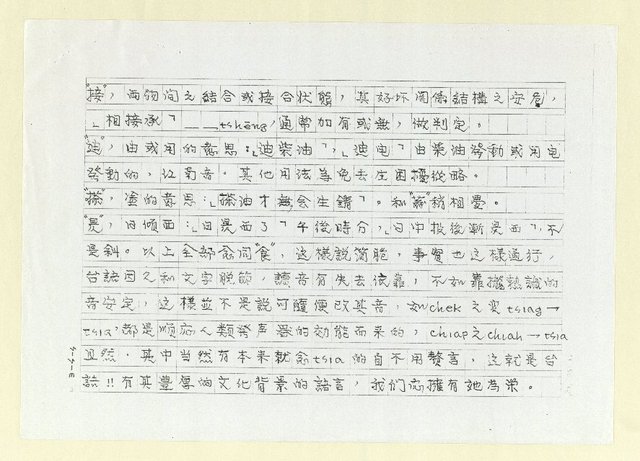 "接",兩物间之結合或接合状態,其好坏関係結構之安危,
「相接承」___tshēng,通常加有或無,做判定。
"迪",由或用的意思:「迪柴油」,「迪电」由柴油発動或用电
発動的,江南音。其他用法為免去庄困擾從略。
"搽",塗的意思:「搽油才無会生鏽」。和"麻"稍相疊。
"是",日傾西:「日是西了」午後時分,「日中按後斬是西」,不
是斜。以上全部念同"食",这樣説簡脆,事實也这樣通行,
台語因久和文字脱節,讀音有失去依靠,不如靠攏熟識的
音安定,这樣並不是說可隨便改其音,如chek之变tsiag→
tsia,都是順应人類発声器的効能而来的,chiap之chiah→tsia
亦然,其中当然有本来就念tsia的自不用贅言,这就是台
語!!有其豊厚的文化背景的語言,我们應擁有她為荣。